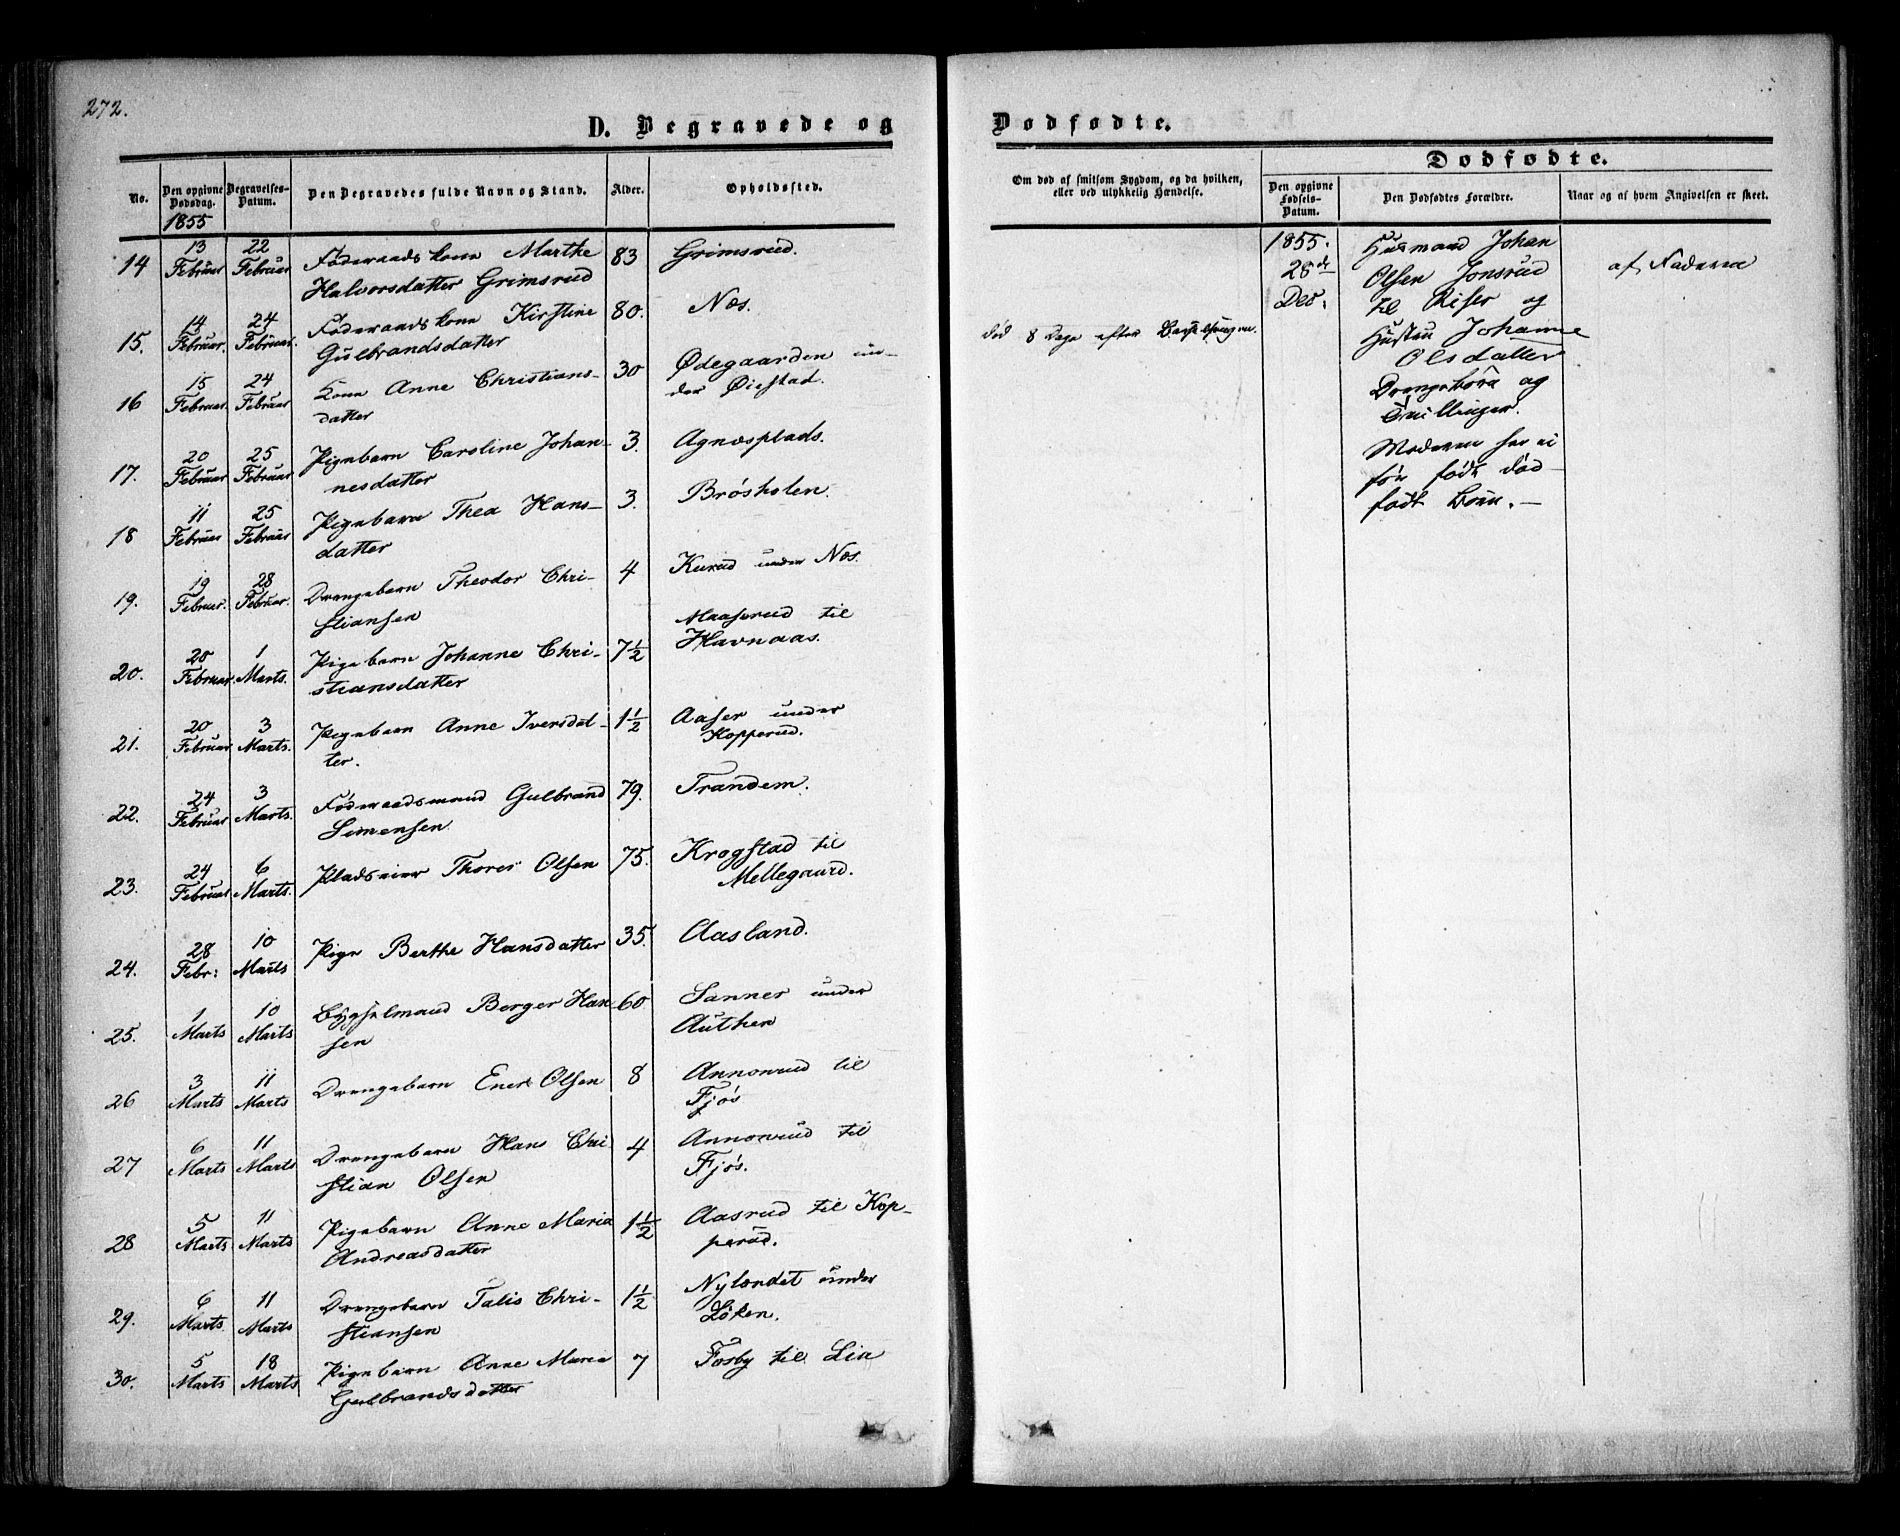 272.
D. Begravede og
No.
Den opgivne Dødsdag.
Begravelses-Datum.
Den Begravedes fulde Navn og Stand.
Alder.
Opholdssted.
1855
14 13 Februar 22 Februar Føderaadskone Marthe 83 Grimsrud.
Halvorsdatter Grimsrud
15. 14 Februar. 24 Februar. Føderaadskone Kirstine 80. Næs.
Gulbrandsdatter
16 15 Februar. 24 Februar Kone Anne Christians- 30 Ødegaarden un-
datter der Øiestad.
17. 20 Februar 25 Februar Pigebarn Caroline Johan- 3. Agnæsplads.
nesdatter
18 11 Februar 25 Februar Pigebarn Thea Hans- 3. Brøsholen.
datter
19. 19 Februar. 28 Februar. Drengebarn Theodor Chri- 4 Kurud under Næs.
stiansen
20. 20 Februar. 1 Marts. Pigebarn Johanne Chri- 7½ Maaserud til
stiansdatter Havnaas.
21. 20 Februar 3 Marts. Pigebarn Anne Iversdat- 1½ Aaser under
ter. Kopperud.
22. 24 Februar 3 Marts. Føderaadsmand Gulbrand 79. Trandem.
Simensen
23. 24 Februar 6 Marts. Pladseier Thorer Olsen 75. Krogstad til
Mellegaard.
24. 28 Febr: 10 Marts Pige Berthe Hansdatter 35. Aasland.
25. 1 Marts 10 Marts Bygselmand Berger Han 60. Sanner under
sen Authen
26 3 Marts 11 Marts Drengebarn Ener Olsen 8 Annonrud til
Fjøs
27 6 Marts 11 Marts Drengebarn Hans Chri 4 Annonrud til
stian Olsen Fjøs.
28 5 Marts 11 Marts Pigebarn Anne Maria 1½ Aasrud til Kop-
Andreasdatter perud.
29. 6 Marts. 11 Marts Drengebarn Talis Chri- 1½ Nylændet under
stiansen Løken.
30. 5 Marts 18 Marts Pigebarn Anne Maria 7 Fosby til Lia
Gulbrandsdatter
Dødfødte.
Om død af smitsom Sygdom, og da hvilken,
eller ved ulykkelig Hændelse.
Dødfødte.
Den opgivne Fødsels-Datum.
Den Dødfødtes Forældre.
Naar og af hvem Angivelsen er skeet.
død 8 Dage efter Barselsengen.
1855. Husmand Johan
28de Olsen Jonsrud af Faderen
Dec. til Riser og
Hustru Johanne
Olsdatter
Drengebørn og
Tvillinger.
Moderen har ei
før født død-
født Børn. —